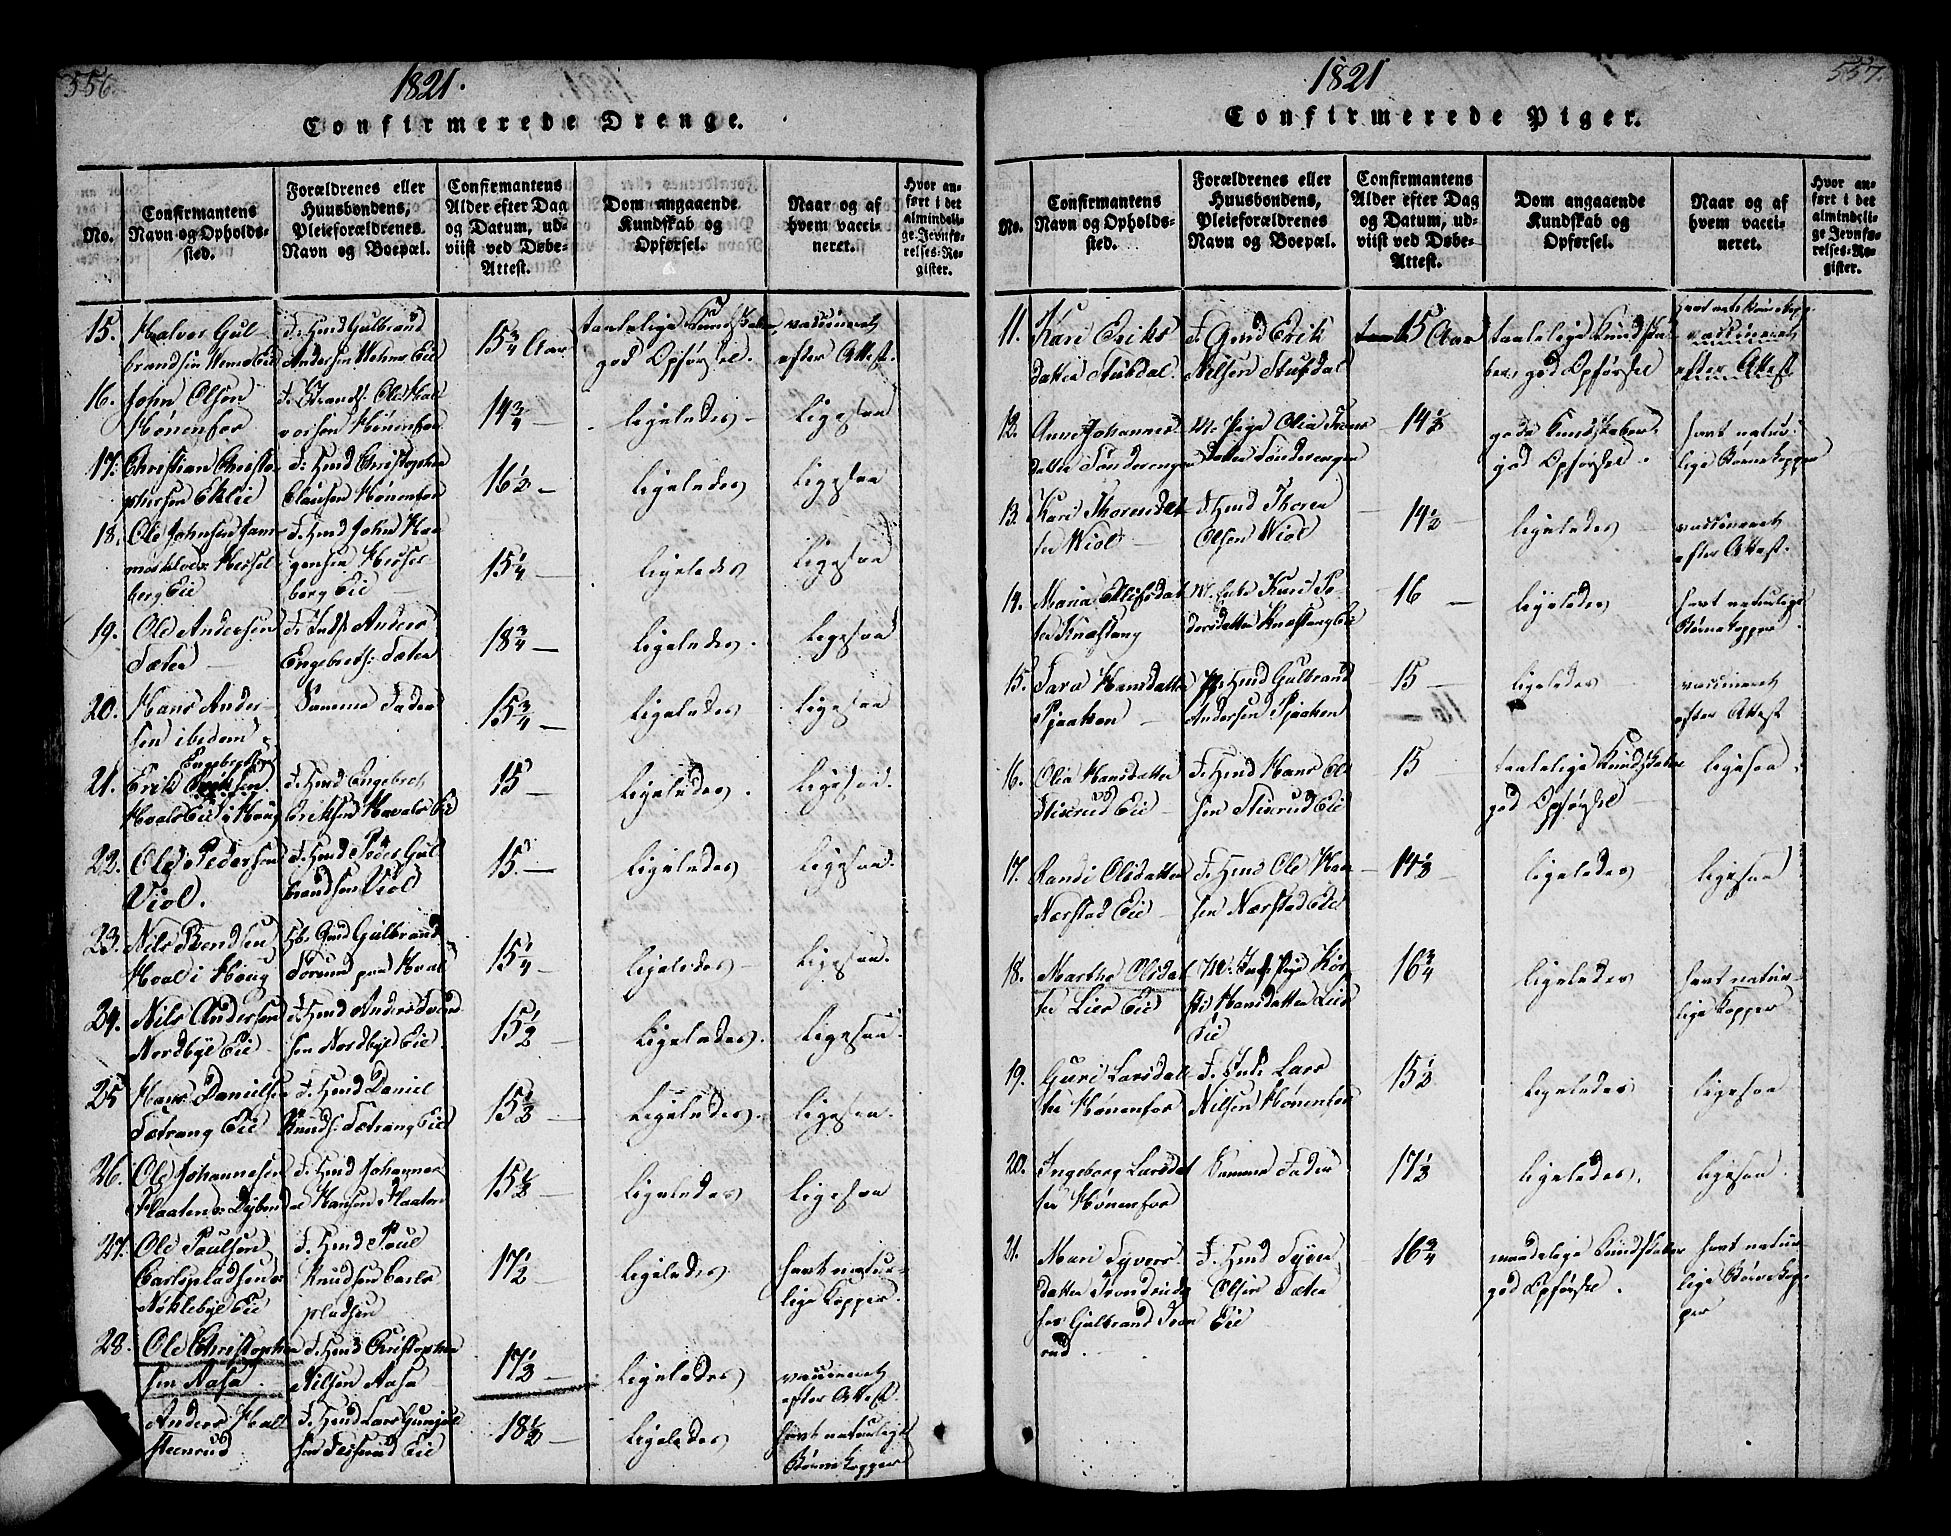 556.
1821.
Confirmerede Drenge.
No.
Confirmantens
Navn og Opholds-
sted.
Forældrenes eller
Huusbondens,
Pleieforældrenes
Navn og Boepæl.
Confirmantens
Alder efter Dag
og Datum, ud-
viist ved Døbe-
Attest.
Dom angaaende
Kundskab og
Opførsel.
Naar og af
hvem vacci-
neret.
Hvor an-
ført i det
almindeli-
ge Jevnfø-
relses-Re-
gister.
15. Halvor Gul
brandsen
F. Gmd Gulbrand
Andersen
15¾ Aar
taalelige Kundskaber
god Opførsel.
vaccineret
efter Attest.
16. John Olsen
Hønenfos
F. Strands. Ole Hal
vorsen Hønenfos
14¾ —
ligeledes —
ligesaa
17. Christian Christo
phersen Eklie
F. Hmd Christopher
Clausen Hønenfos
16½ —
ligeledes
ligesaa
18. Ole Johnsen
Hessel
berg Eie
F. Hmd John
Hessel
berg Eie
15¼ —
ligeledes
ligesaa
19. Ole Andersen
Sæter —
F. Inds. Anders
Engebrets. Sæter
18¾ —
ligeledes.
ligesaa
20. Hans Ander-
sen ibidem
Samme Fader
15¾ —
ligeledes
ligesaa
21. Erik Engebretsen
Hvals Eie i Houg
F. Hmd Engebret
Eriksen Hvals Eie
15 —
ligeledes.
ligesaa.
22. Ole Pedersen
Viol.
F. Hmd Peder Gul
brandsen Viol
15. —
ligeledes
ligesaa.
23. Nils Bendsen
Hval i Houg
Hb. Gmd Gulbrand
paa Hval
15¼ —
ligeledes —
ligesaa.
24. Nils Andersen
Nordbye Eie
F. Hmd Anders
sen Nordbye Eie
15½ —
ligeledes.
ligesaa.
25 Hans Danielsen
Sætrang Eie
F. Hmd Daniel
Knuds. Sætrang Eie
15½ —
ligeledes.
ligesaa.
26. Ole Johannesen
Plaaten
F. Hmd Johannes
Hansen Plaaten
15½ —
ligeledes
ligesaa
27. Ole Paulsen
Nøklebye Eie
F. Hmd Paul
Knudsen
pladsen
17½ —
ligeledes
havt natur-
lige Kopper.
28. Ole Christopher
sen Aasa.
F. Hmd Christopher
Nilsen Aasa
17½ —
ligeledes
vaccineret
efter Attest.
Anders
F. Hmd Lars
Eie
18½ —
ligeledes
havt naturlige
Børnekopper
1821
557.
Confirmerede Piger.
No.
Confirmantens
Navn og Opholds-
sted.
Forældrenes eller
Huusbondens,
Pleieforældrenes
Navn og Boepæl.
Confirmantens
Alder efter Dag
og Datum, ud-
viist ved Døbe-
Attest.
Dom angaaende
Kundskab og
Opførsel.
Naar og af
hvem vacci-
neret.
Hvor an-
ført i det
almindeli-
ge Jevnfø-
relses-Re-
gister.
11. Kari Eriks
datter Stubdal.
F Gmd Erik
Nilsen Stubdal
15 Aar
taalelige Kundska
ber, god Opførsel
vaccineret
efter Attest
12. Anne Johannes
datter Tønderengen
M. Pige Olia
datter Tønderengen
14½
gode Kundskaber.
god Opførsel.
havt natur-
lige Børnekopper
13. Kari Thorsdat
ter Wiol —
F. Hmd Thore
Olsen Wiol
14½
ligeledes
vaccineret
efter Attest.
14. Maria
ter Knæstang
M. Enke Kari Pe
dersdatter Knæstang Eie
16 —
ligeledes
havt naturlige
Børnekopper.
15. Sara Hansdatter
Pjaaken —
Hmd Gulbrand
Andersen Pjaaken
15 —
ligeledes
vaccineret
efter Attest
16. Olia Hansdatter
Stixrud Eie —
F. Hmd Hans Ol
sen Stixrud Eie
15
taalelige Kundskaber
god Opførsel —
ligesaa.
17. Randi Olsdatter
Nærstad Eie —
F. Hmd Ole Han
sen Nærstad Eie
14½
ligeledes
ligesaa
18. Marthe Olsdat
ter Lier Eie
M. Inds. Pige Kir
sti Hansdatter Lier
Eie
16¾
ligeledes
havt natur-
lige Kopper
19. Guri Larsdat
ter Hønenfos
F. Inds. Lars
Nilsen Hønenfos
15½
ligeledes
ligesaa
20. Ingeborg Larsdat
ter Hønenfos
Samme Fader
17½
ligeledes.
ligesaa.
21. Mari Syvers
datter
hos Gulbrand
rud.
F. Hmd Syver
Olsen Sæter
Eie
16¾
maadelige Kundskaber
god Opførsel.
havt natur-
lige Børnekop-
per